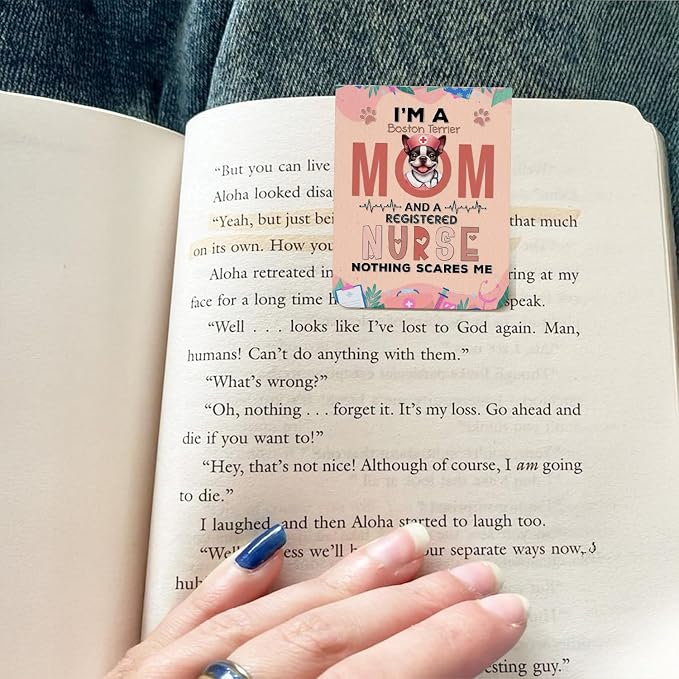 I'M A
Boston Terrier
MOM
AND A
REGISTERED
NURSE
NOTHING SCARES ME
“But you can live
Aloha looked
“Yeah, but just that much
on its own. How
Aloha retreated at my
face for a long time speak.
“Well . . . looks like I’ve lost to God again. Man,
humans! Can’t do anything with them.”
“What’s wrong?”
“Oh, nothing . . . forget it. It’s my loss. Go ahead and
die if you want to!”
“Hey, that’s not nice! Although of course, I am going
to die.”
I laughed and then Aloha started to laugh too.
“Well we’ll separate ways now,
guy.”